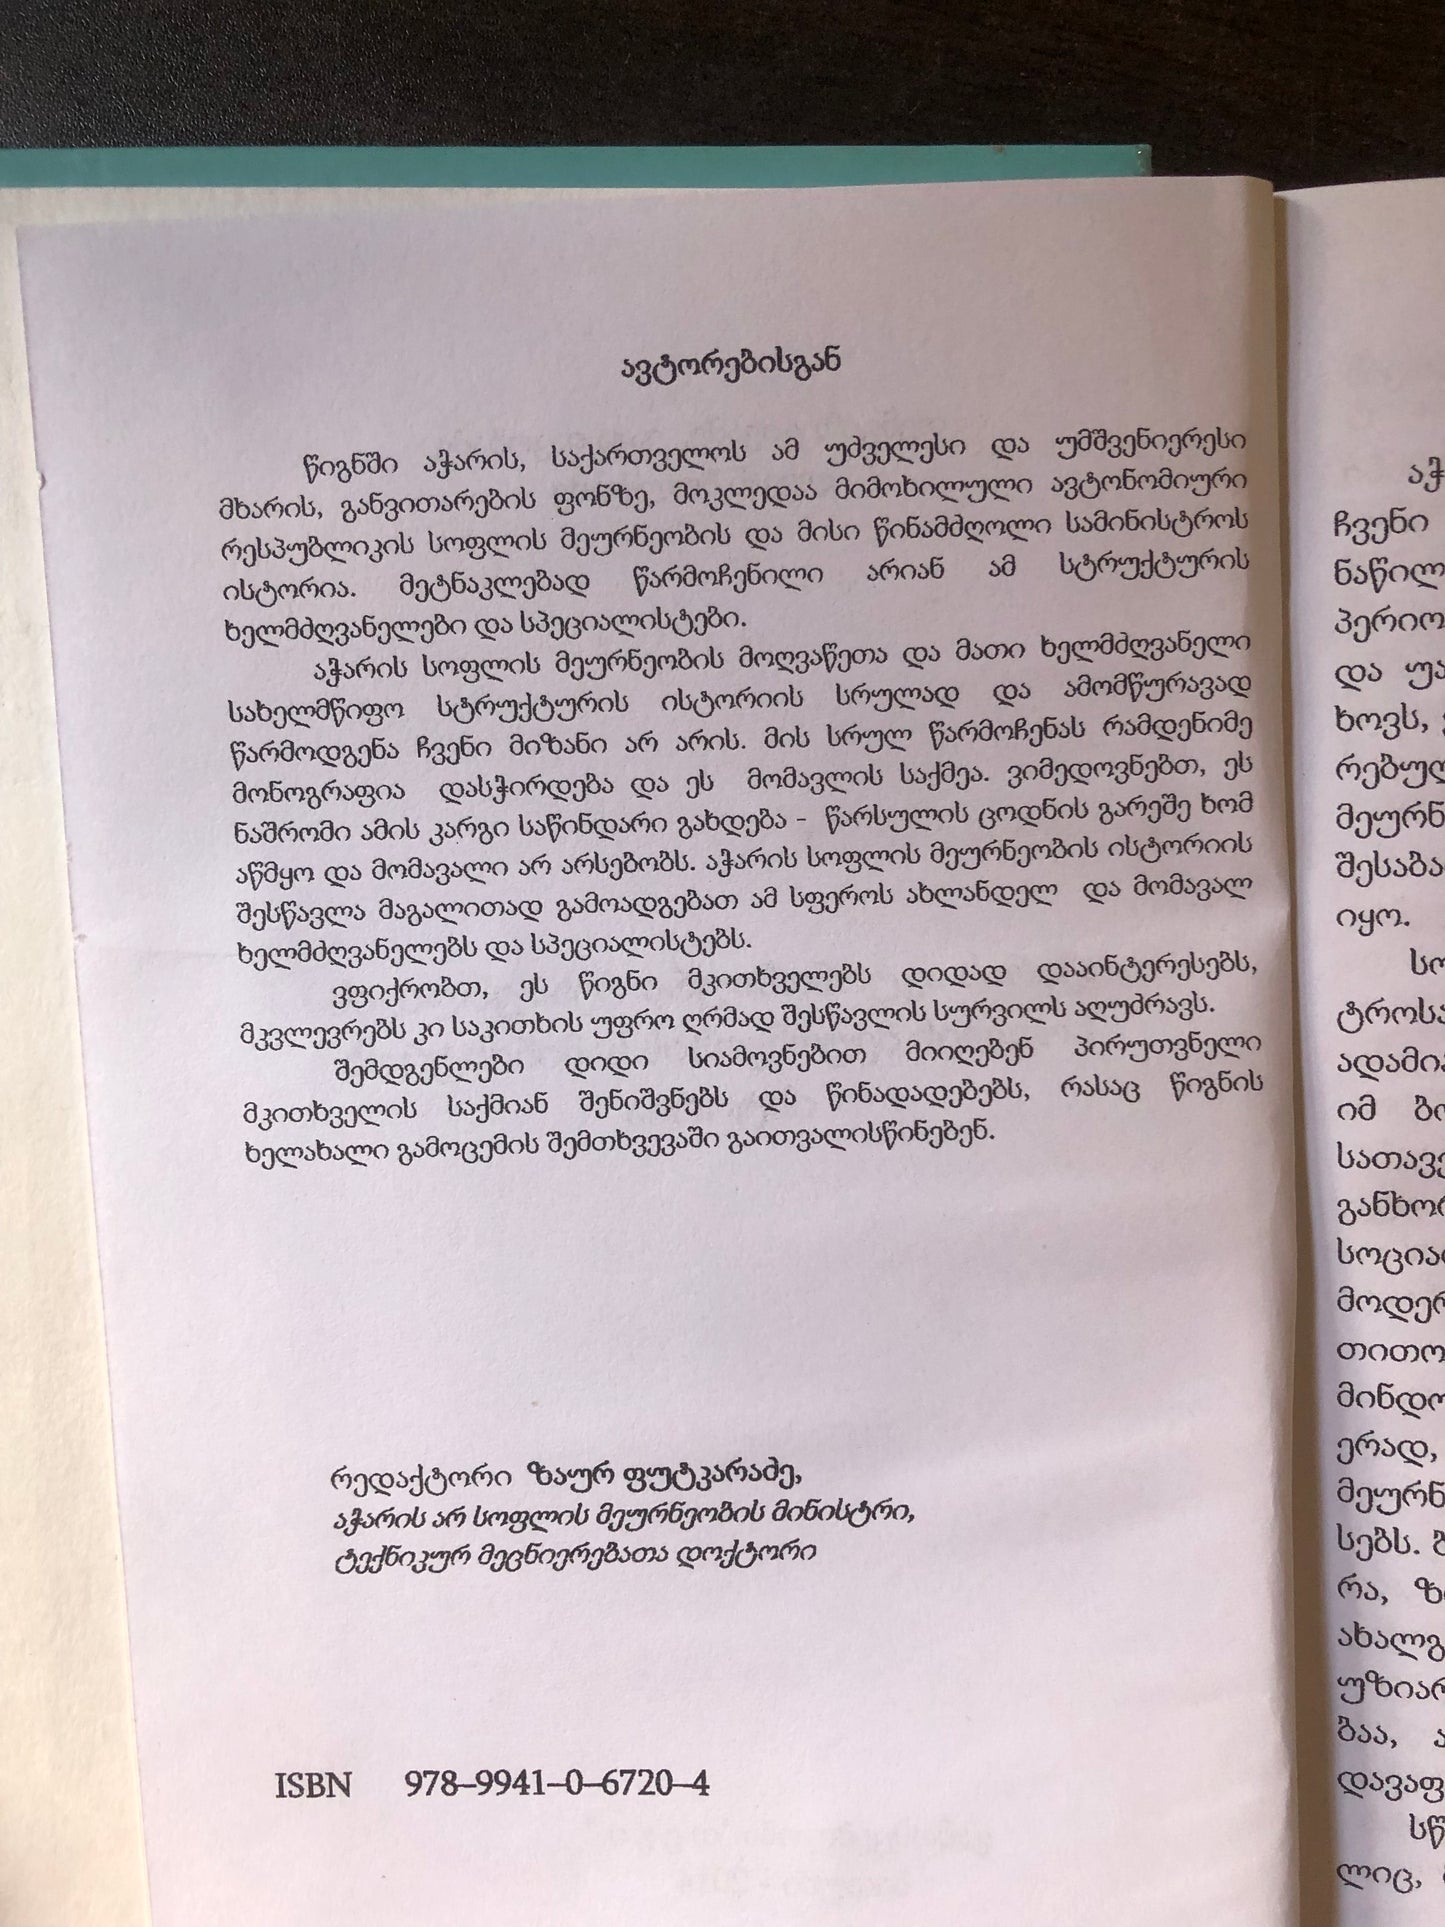 ავტორებისგან
წიგნში აჭარის, საქართველოს ამ უძველესი და უმშვენიერესი
მხარის, განვითარების ფონზე, მოკლედაა მიმოხილული ავტონომიური
რესპუბლიკის სოფლის მეურნეობის და მისი წინამძღოლი სამინისტროს
ისტორია. მეტნაკლებად წარმოჩენილი არიან ამ სტრუქტურის
ხელმძღვანელები და სპეციალისტები.
აჭარის სოფლის მეურნეობის მოღვაწეთა და მათი ხელმძღვანელი
სახელმწიფო სტრუქტურის ისტორიის სრულად და ამომწურავად
წარმოდგენა ჩვენი მიზანი არ არის. მის სრულ წარმოჩენას რამდენიმე
მონოგრაფია დასჭირდება და ეს მომავლის საქმეა. ვიმედოვნებთ, ეს
ნაშრომი ამის კარგი საწინდარი გახდება - წარსულის ცოდნის გარეშე ხომ
აწმყო და მომავალი არ არსებობს. აჭარის სოფლის მეურნეობის ისტორიის
შესწავლა მაგალითად გამოადგებათ ამ სფეროს ახლანდელ და მომავალ
ხელმძღვანელებს და სპეციალისტებს.
ვფიქრობთ, ეს წიგნი მკითხველებს დიდად დააინტერესებს,
მკვლევრებს კი საკითხის უფრო ღრმად შესწავლის სურვილს აღუძრავს.
შემდგენლები დიდი სიამოვნებით მიიღებენ პირუთვნელი
მკითხველის საქმიან შენიშვნებს და წინადადებებს, რასაც წიგნის
ხელახალი გამოცემის შემთხვევაში გაითვალისწინებენ.
რედაქტორი ზაურ ფუტკარაძე,
აჭარის არ სოფლის მეურნეობის მინისტრი,
ტექნიკურ მეცნიერებათა დოქტორი
ISBN 978–9941–0–6720–4
ჩვენი
და
ხოვს,
იყო.
იმ
ერად,
სებს.
რა,
ბაა,
ლიც,